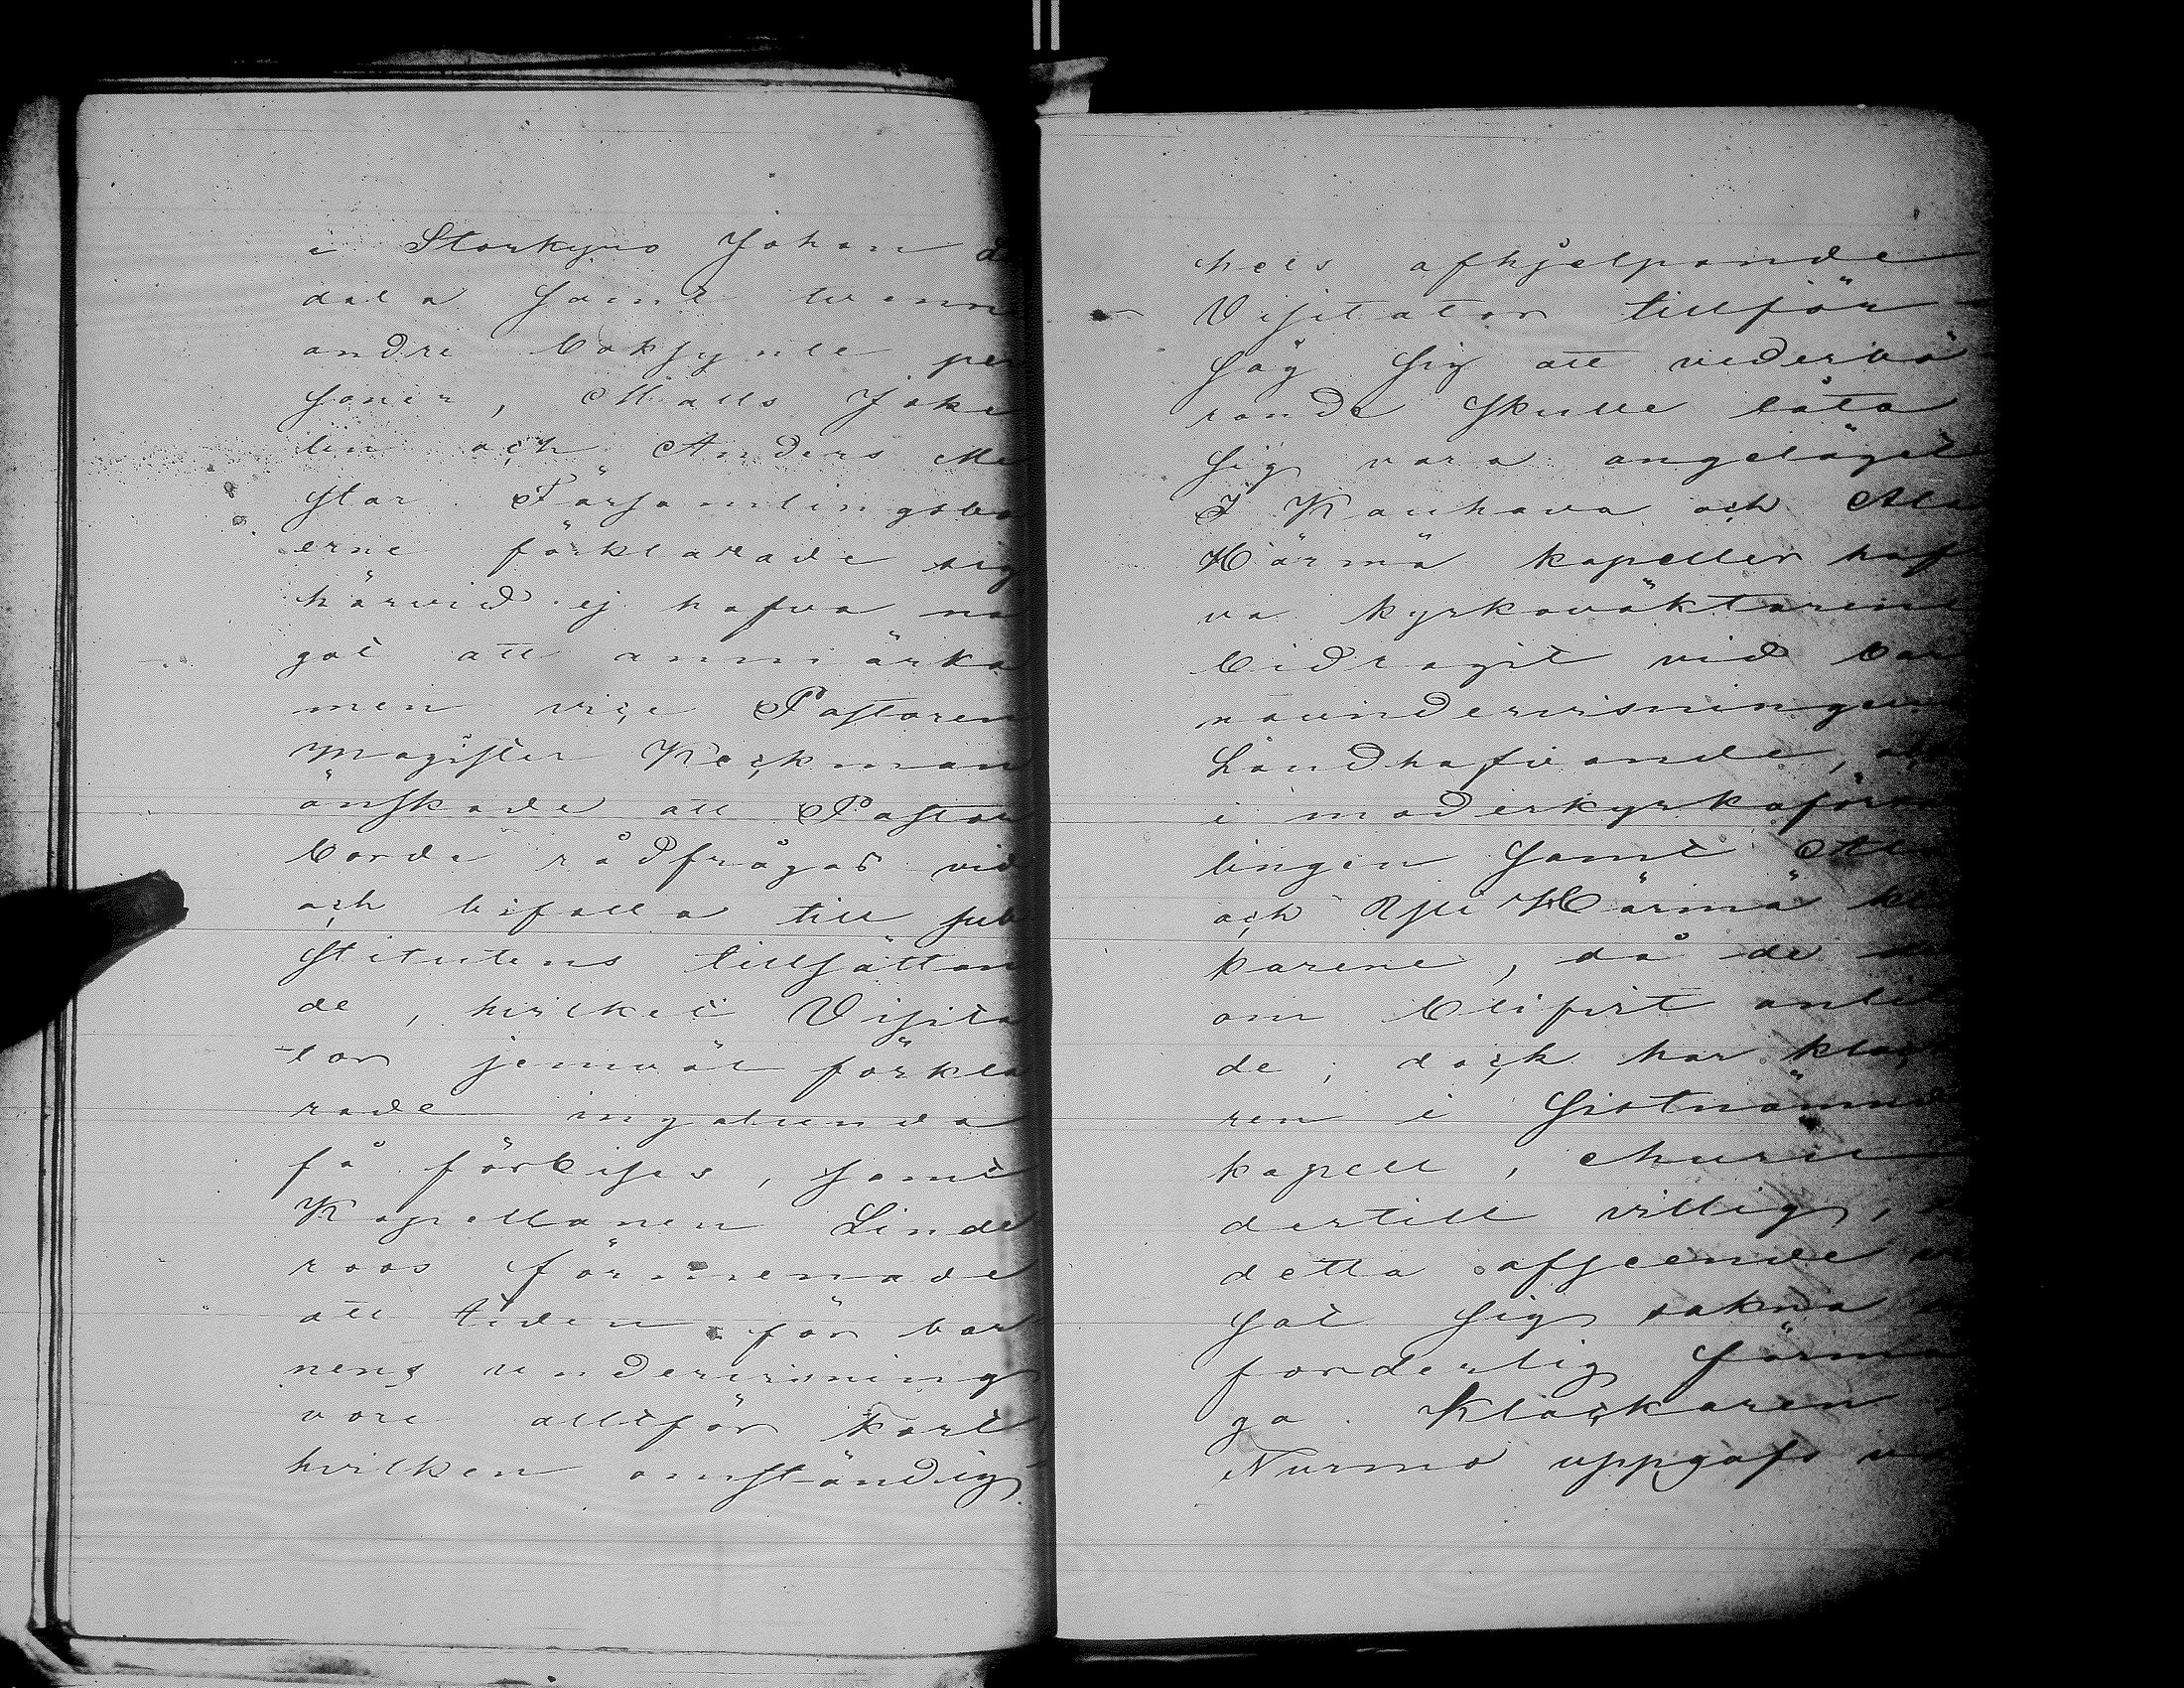 i Storkyro Johan
dala samt tvenne
andre boksynte per
soner, Matts Joke
lin och Anders Me
star. Församlingsbo
erne förklarade sig
härvid ej hafva nå
got att anmärka
men vice Pastoren
Magister Keckman
önskade att Pastor
borde rådfrågas vid
och bifalla till sub
stitutens tillsättan
de, hvilket Visita
tor jemväl förkla
rade ingalunda
få förbises, samt
Kapellanen Linde
roos förmenade
att tiden för bar
nens undervisning
vore alltför kort,
hvilken omständig
hets afhjelpande
Visitator tillför
såg sig att vederbö
rande skulle låta
sig vara angeläget
I Kauhava och Ala
Härmä kapeller haf
va kyrkoväktarene
bidragit vid bar
naundervisningens
handhafvande, och
i moderkyrkoförsam
lingen samt Ala
och Ysti Härmä kloc
karene, då de der
om blifvit anlita
de; dock har klocka
ren i sistnämnda
kapell, ehuru
dertill villig, i
detta afseende vi
sat sig sakna er
forderlig förmå
ga. Klockaren i
Nurmo uppgafs va